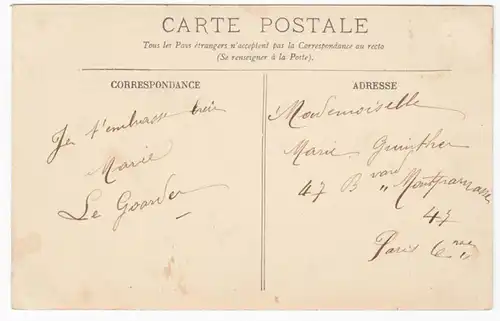 CARTE POSTALE
Tous les Pays étrangers n'acceptent pas la Correspondance au recto
(Se renseigner à la Poste).
CORRESPONDANCE
Je t'embrasse bien
Marie
Le Goarder
ADRESSE
Mademoiselle
Marie Guinther
47 Bvard Montparnasse
47
Paris 6me